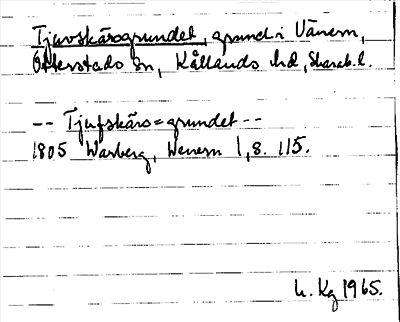 Tjuvskärsgrundet, grund i Vänern,
Otterstads sn, Kållands hd, Skarab.l.
-- Tjufskärs=grundet --
1805 Warberg, Wenern 1, s. 115.
h. Kg 1965.